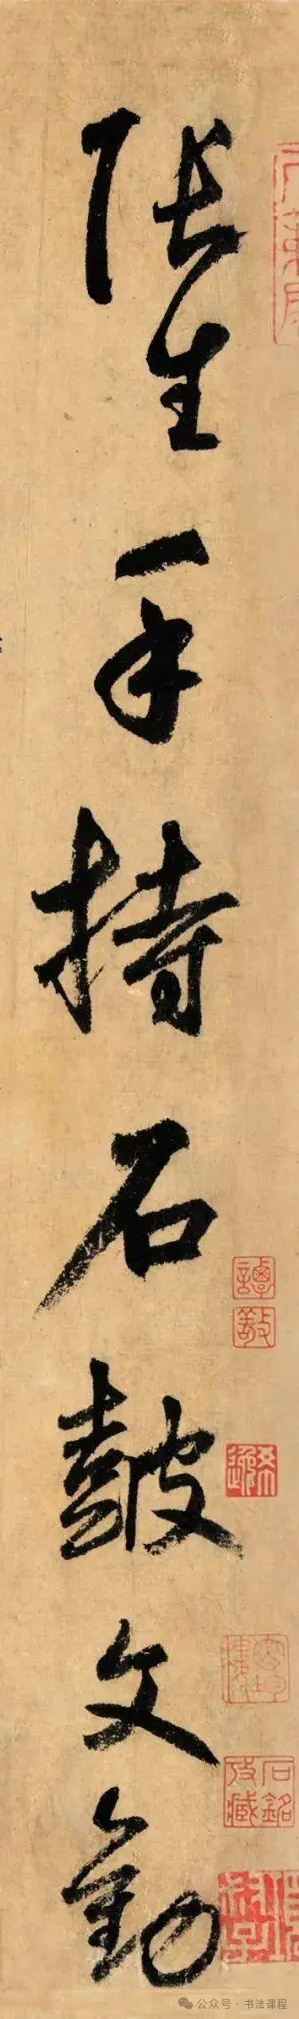 張生手持石皷文勸
公众号 · 书法课程